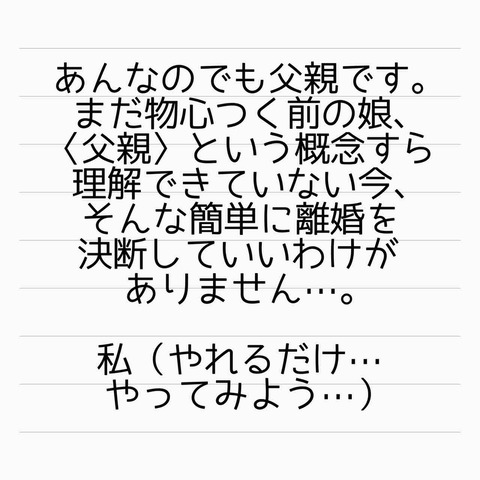 あんなのでも父親です。
まだ物心つく前の娘、
〈父親〉という概念すら
理解できていない今、
そんな簡単に離婚を
決断していいわけが
ありません…。
私（やれるだけ…
やってみよう…）